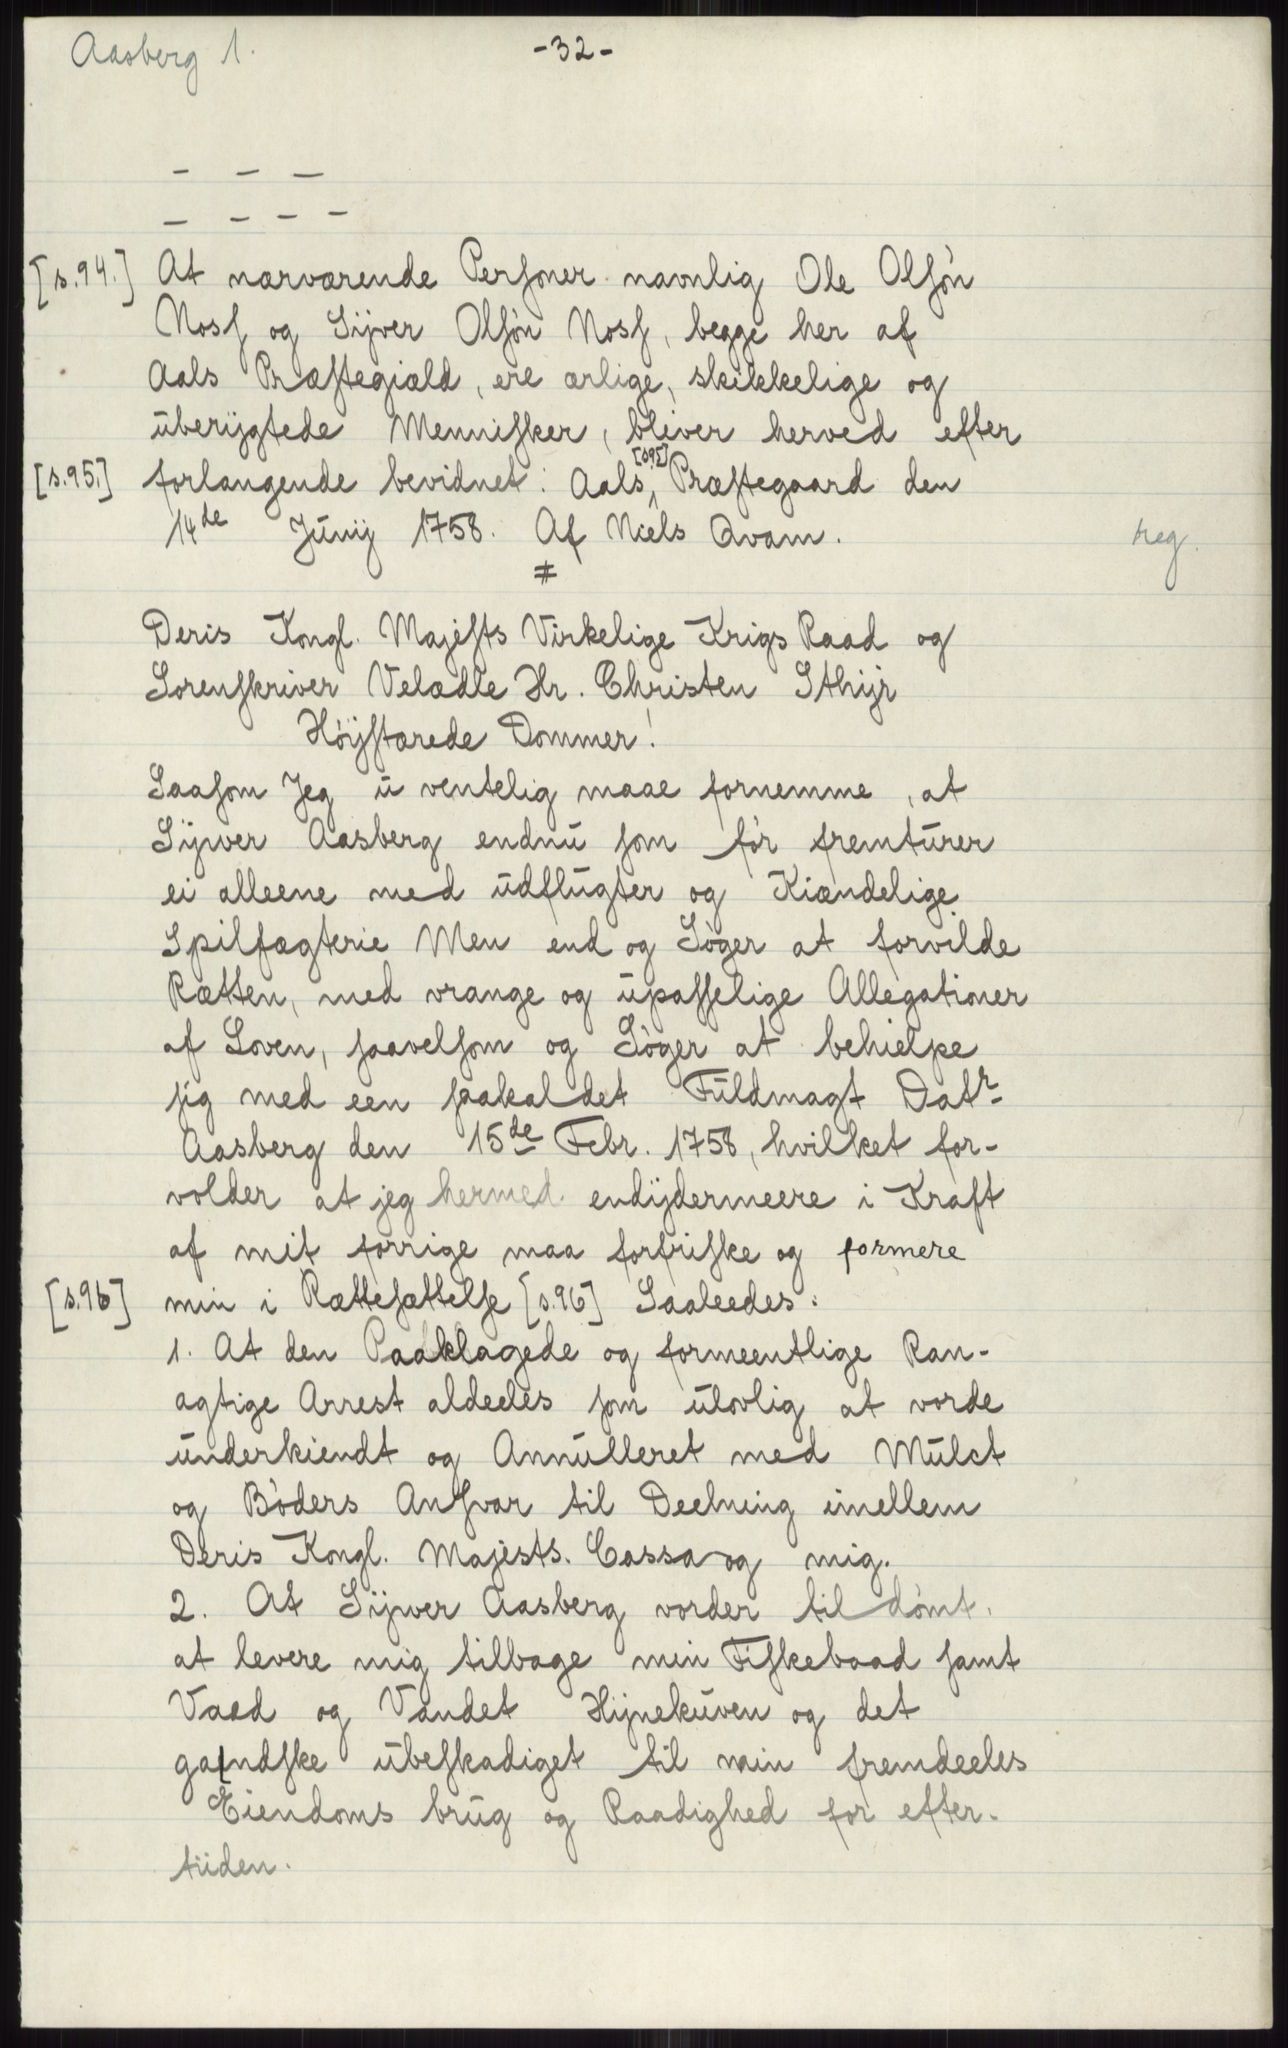 Aasberg 1.
-32-
- - -
- - - -
[s.94.] At nærværende Personer navnlig Ole Olsøn
Noss og Sijver Olsøn Noss, begge her af
Aals Præstegiæld, ere ærlige, skikkelige og
uberijgtede Mennisker, bliver herved efter
[s.95.] forlangende bevidnet: Aals [s.95] Præstegaard den
14de Junij 1758. Af Niels Qvam. reg.
#
Deris Kongl. Majests Virkelige Krigs Raad og
Sorenskriver Velædle Hr. Christen Sthijr
Høijstærede Dommer!
Saasom Jeg u ventelig maae fornemme, at
Sijwer Aasberg endnu som før fremturer
ei alleene med udflugter og Kiændelige
Spilfægterie Men end og Søger at forvilde
Rætten, med vrange og upasselige Allegationer
af Loven, saavelsom og Søger at behielpe
sig med een saakaldet Fuldmagt Datr
Aasberg den 15de Febr. 1758, hvilket for-
volder at jeg hermed endijdermeere i Kraft
af mit forrige maa forfriske og formere
[s.96] min i Rættesættelse [s.96] Saaleedes:
1. At den Paaklagede og formeentlige Ran-
agtige Arrest aldeeles som ulovlig at vorde
underkiendt og Annulleret med Mulct
og Bøders Ansvar til Deelning imellem
Deris Kongl. Majests. Cassa og mig.
2. At Sijwer Aasberg vorder tildømt,
at levere mig tilbage min Fiskebaad samt
Vaad og Vandet Hijnekuven og det
gandske ubeskadiget til min fremdeeles
Eiendoms brug og Raadighed for efter-
tiiden.